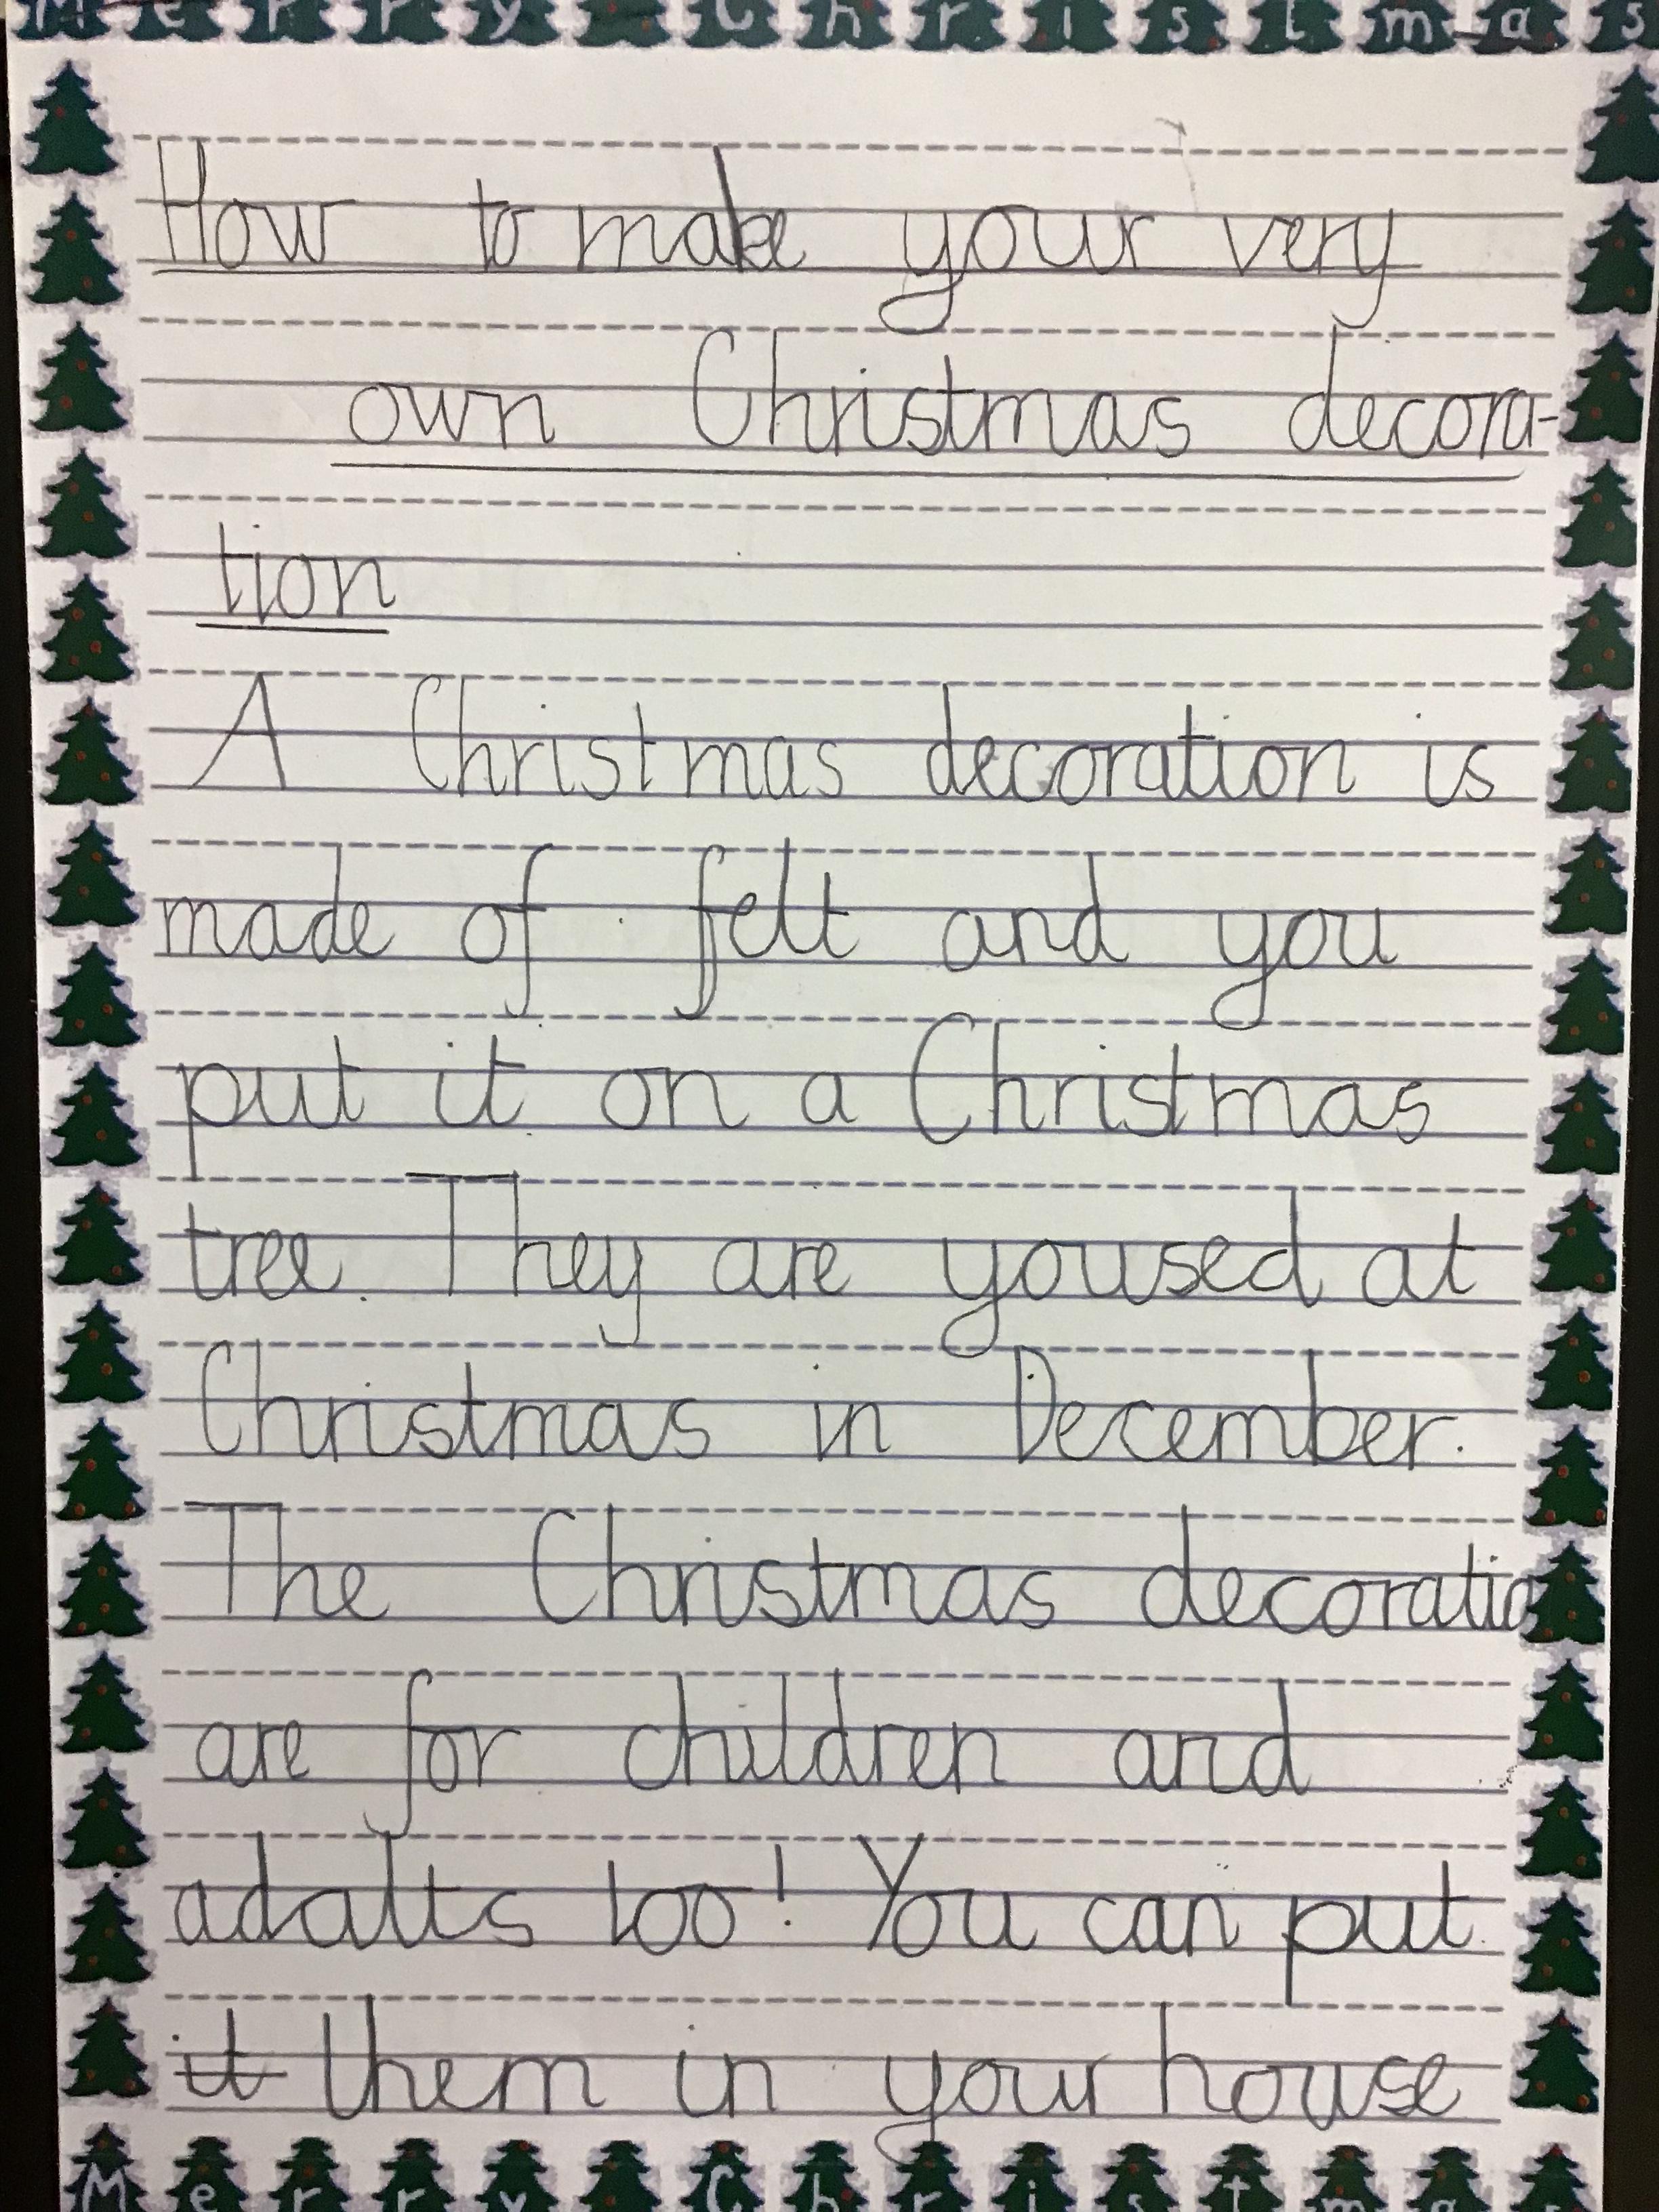 Merry Christmas
How to make your very
own Christmas decora-
tion
A Christmas decoration is
made of felt and you
put it on a Christmas
tree. They are yoused at
Christmas in December.
The Christmas decoratio
are for children and
adalts too! You can put
it them in your house
Merry Christma